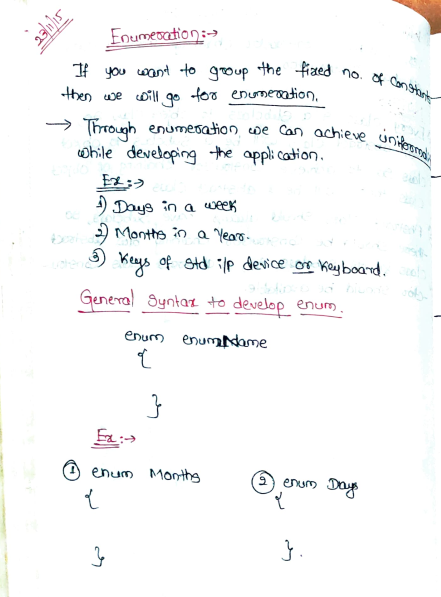 23/11/15
Enumeration:→
If you want to group the fixed no. of constants
then we will go for enumeration.
→ Through enumeration we can achieve
while developing the application.
Ex:→
1) Days in a week
2) Months in a Year.
3) Keys of std i/p device or Keyboard.
General Syntax to develop enum.
enum enumName
{
}
Ex:→
① enum Months ② enum Days
{ {
} }.